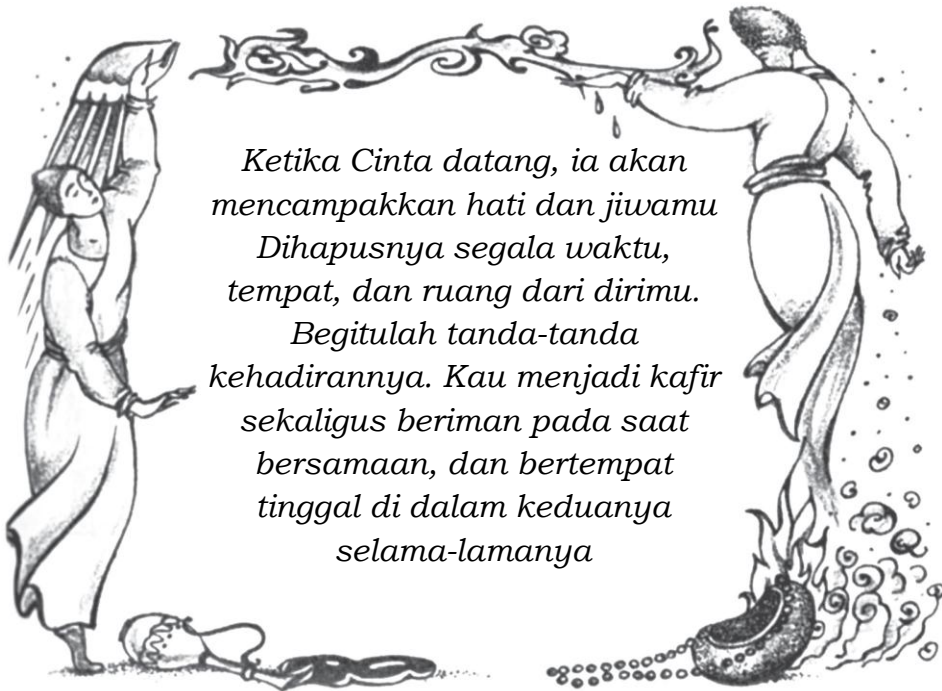 Ketika Cinta datang, ia akan
mencampakkan hati dan jiwamu
Dihapusnya segala waktu,
tempat, dan ruang dari dirimu.
Begitulah tanda-tanda
kehadirannya. Kau menjadi kafir
sekaligus beriman pada saat
bersamaan, dan bertempat
tinggal di dalam keduanya
selama-lamanya